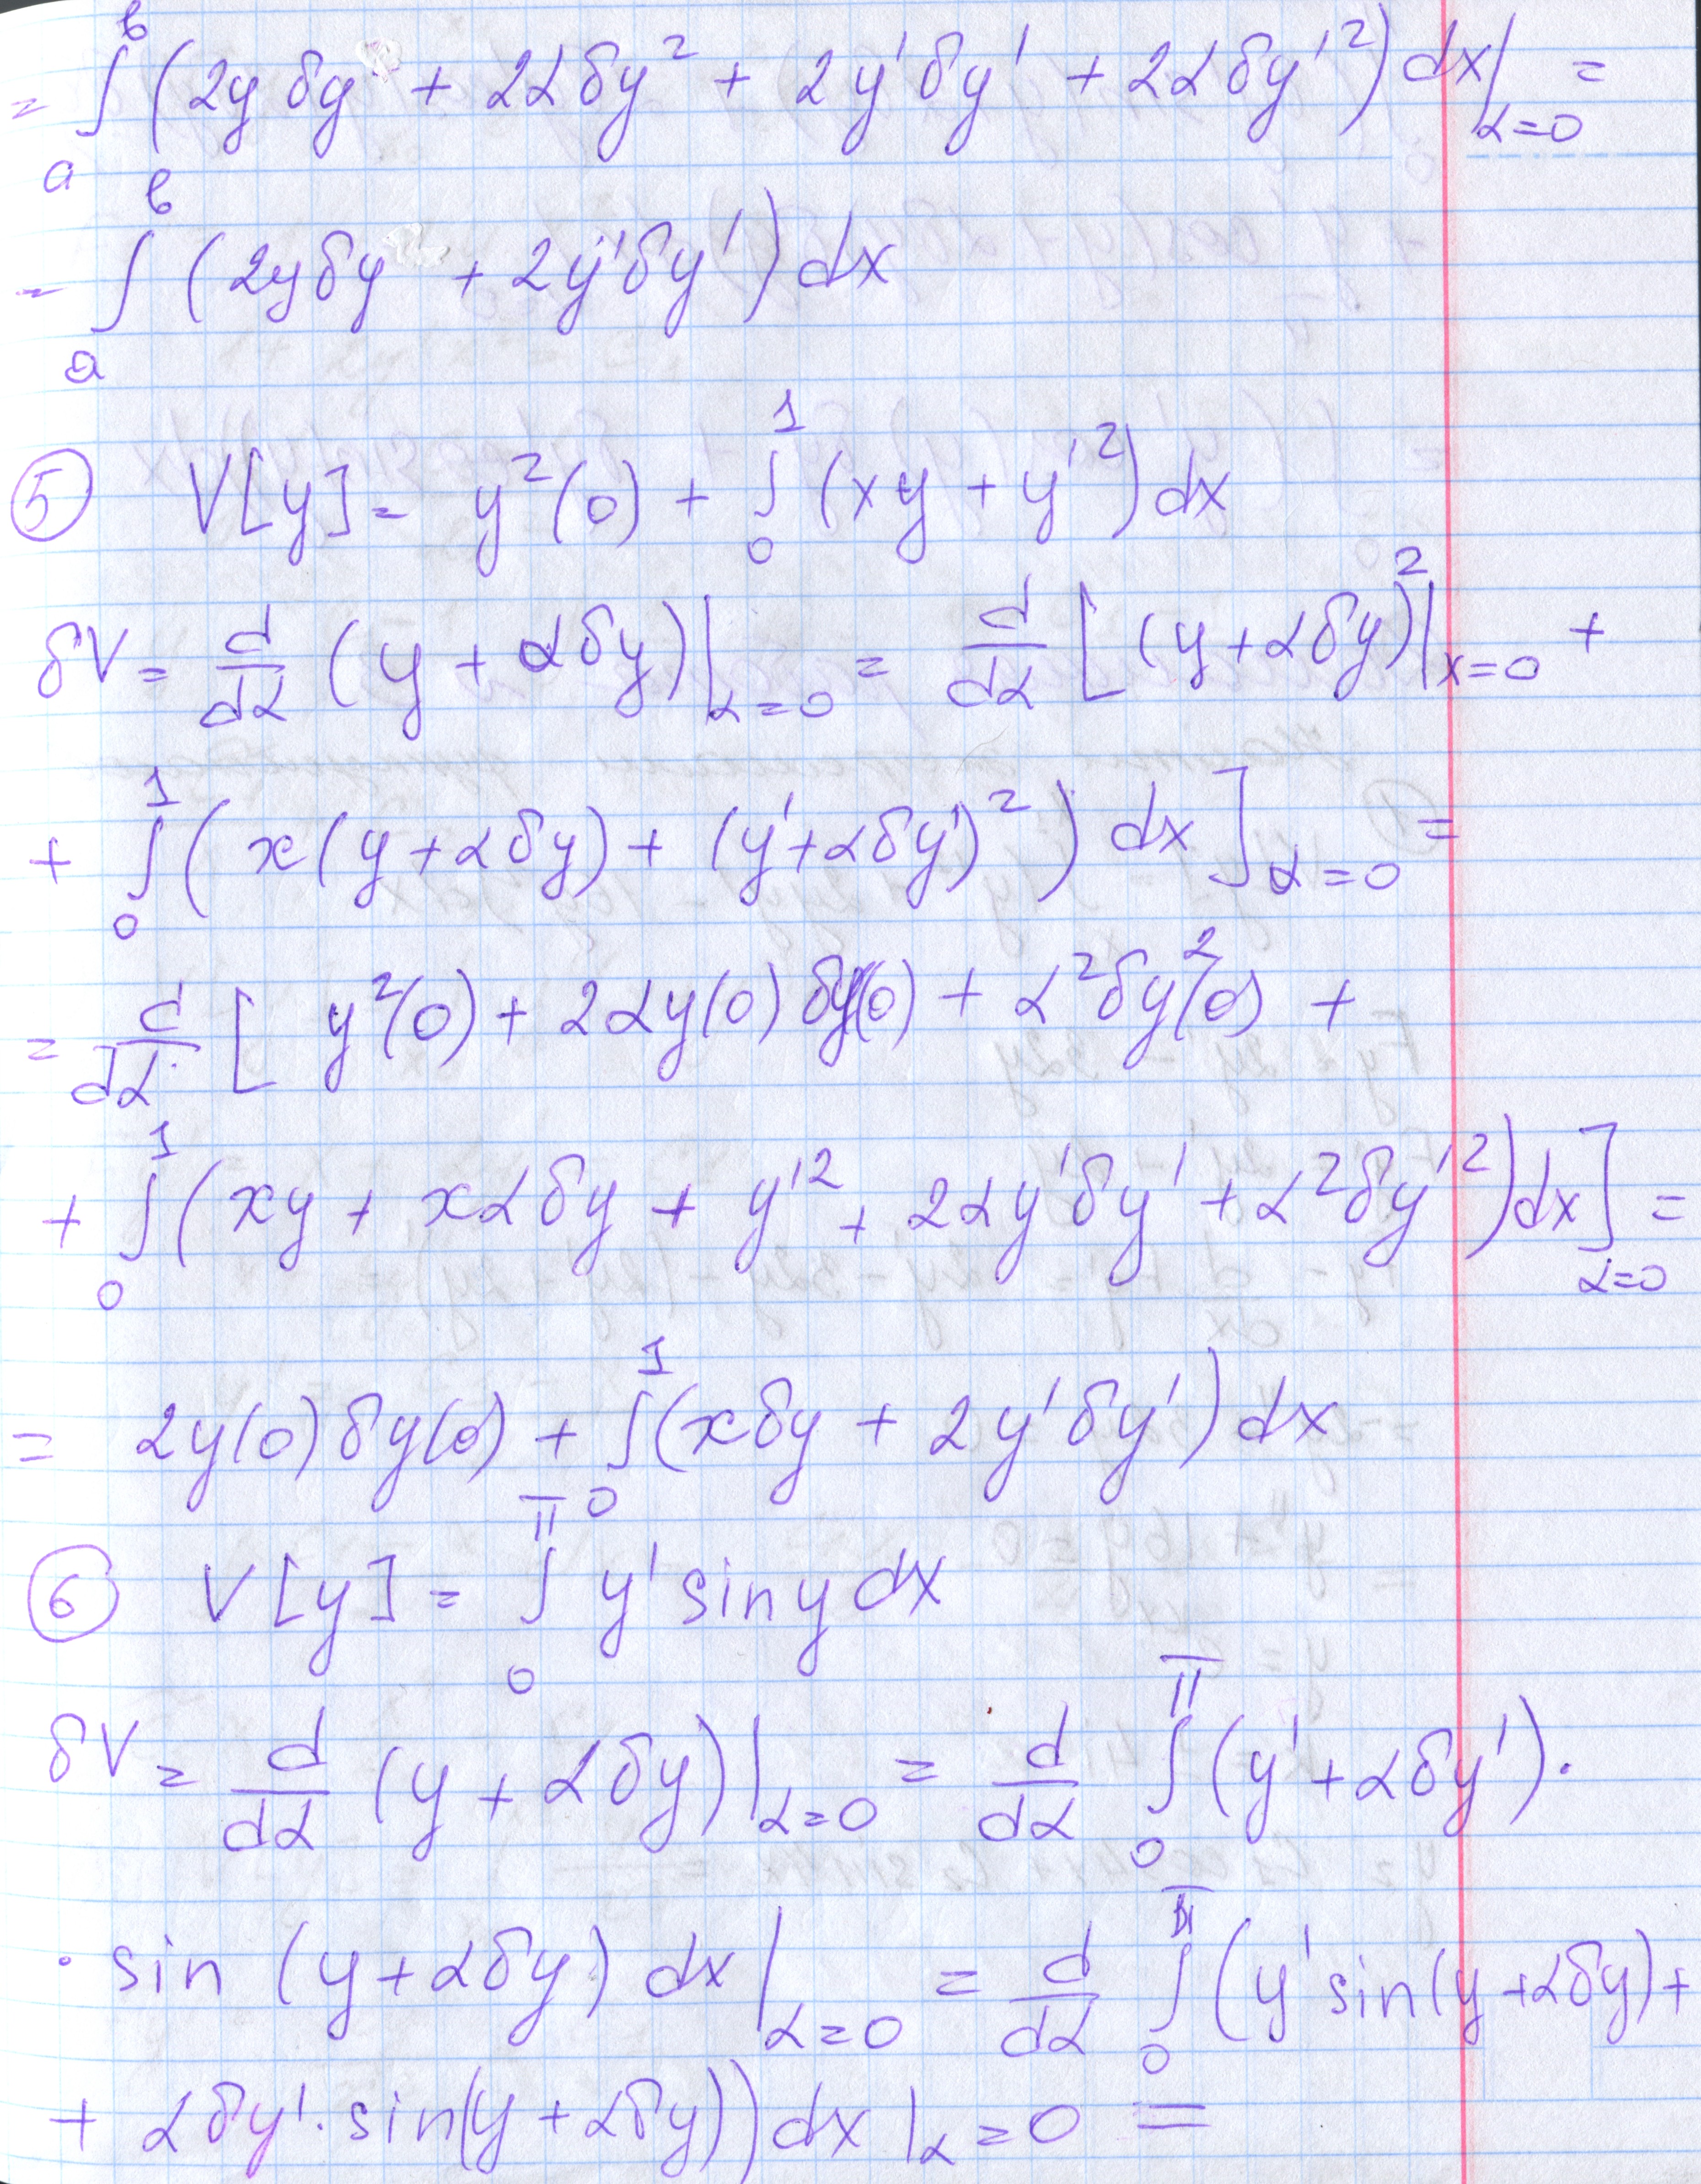 = ∫ₐᵇ (2y δy + 2α δy² + 2y' δy' + 2α δy'²) dx |α=0 =
= ∫ₐᵇ (2y δy + 2y' δy') dx
⑤ V[y] = y²(0) + ∫₀¹ (xy + y'²) dx
δV = d/dα (y + α δy)|α=0 = d/dα [ (y + α δy)²|x=0 +
+ ∫₀¹ ( x(y + α δy) + (y' + α δy')² ) dx ]α=0 =
= d/dα [ y²(0) + 2α y(0) δy(0) + α² δy²(0) +
+ ∫₀¹ (xy + xα δy + y'² + 2α y' δy' + α² δy'²) dx ]α=0 =
= 2y(0) δy(0) + ∫₀¹ (x δy + 2y' δy') dx
⑥ V[y] = ∫₀^π y' sin y dx
δV = d/dα (y + α δy)|α=0 = d/dα ∫₀^π (y' + α δy') ·
· sin (y + α δy) dx |α=0 = d/dα ∫₀^π (y' sin(y + α δy) +
+ α δy' · sin(y + α δy)) dx |α=0 =